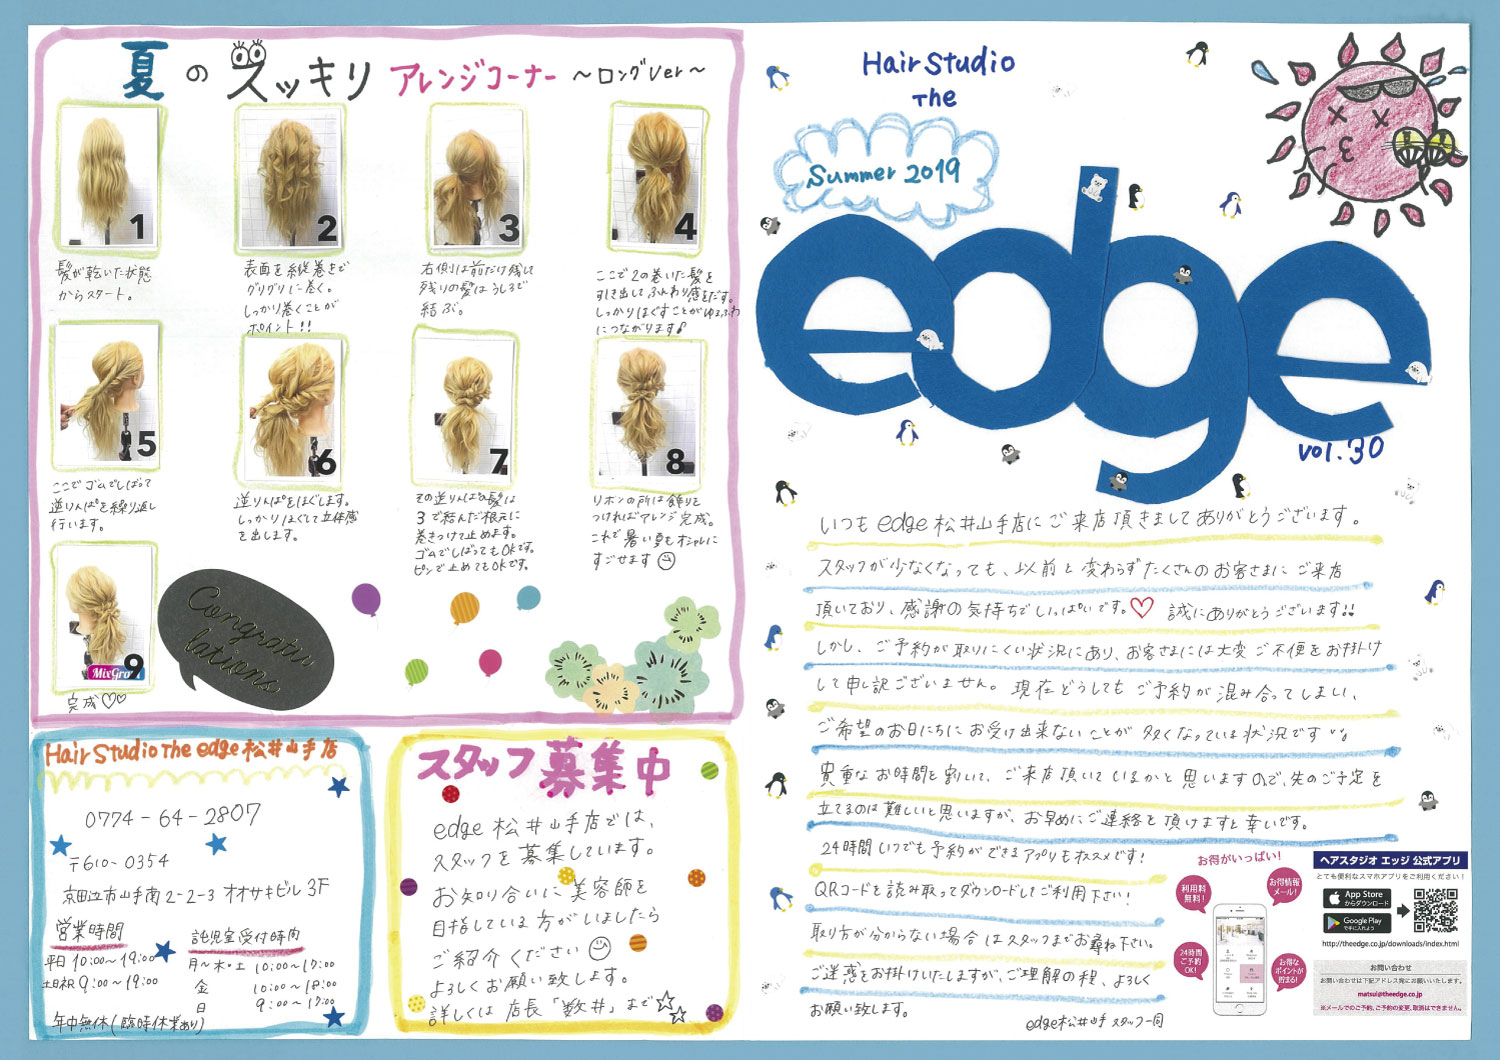 夏のスッキリ アレンジコーナー ～ロングver～
1
髪が乾いた状態
からスタート。
2
表面を縦巻きで
グリグリに巻く。
しっかり巻くことが
ポイント!!
3
右側は前だけ残して
残りの髪はうしろで
結ぶ。
4
ここで2の巻いた髪を
引き出してふんわり感をだす。
しっかりほぐすことがゆるふわ
につながります♪
5
ここでゴムでしばって
逆りんぱを繰り返し
行います。
6
逆りんぱをほぐします。
しっかりほぐして立体感
を出します。
7
その逆りんぱの髪は
3で結んだ根元に
巻きつけて止めます。
ゴムでしばってもOKです。
ピンで止めてもOKです。
8
リボンの所は飾りを
つければアレンジ完成。
これで暑い夏もオシャレに
すごせます
9
MixGra
完成♡♡
Congratu
lations
Hair Studio The edge 松井山手店
0774-64-2807
〒610-0354
京田辺市山手南2-2-3 オオサキビル3F
営業時間
平日 10:00～19:00
土日祝 9:00～19:00
年中無休(臨時休業あり)
託児室受付時間
月～木・土 10:00～17:00
金 10:00～18:00
日 9:00～17:00
スタッフ募集中
edge松井山手店では、
スタッフを募集しています。
お知り合いに美容師を
目指している方がいましたら
ご紹介ください
よろしくお願い致します。
詳しくは店長「数井」まで☆☆
Hair Studio
The
Summer 2019
edge
vol.30
いつもedge松井山手店にご来店頂きましてありがとうございます。
スタッフが少なくなっても、以前と変わらずたくさんのお客さまにご来店
頂いており、感謝の気持ちでいっぱいです。♡ 誠にありがとうございます!!
しかし、ご予約が取りにくい状況にあり、お客さまには大変ご不便をお掛け
して申し訳ございません。現在どうしてもご予約が混み合ってしまい、
ご希望のお日にちにお受け出来ないことが多くなっている状況です
貴重なお時間を割いて、ご来店頂いているかと思いますので、先のご予定を
立てるのは難しいと思いますが、お早めにご連絡を頂けますと幸いです。
24時間いつでも予約ができるアプリもオススメです!
QRコードを読み取ってダウンロードしてご利用下さい!
取り方が分からない場合はスタッフまでお尋ね下さい。
ご迷惑をお掛けいたしますが、ご理解の程、よろしく
お願い致します。
edge松井山手 スタッフ一同
お得がいっぱい!
利用料
無料!
お得情報
メール!
24時間
ご予約
OK!
お得な
ポイントが
貯まる!
ヘアスタジオ エッジ 公式アプリ
とても便利なスマホアプリをご利用ください!
App Store
からダウンロード
Google Play
で手に入れよう
http://theedge.co.jp/downloads/index.html
お問い合わせ
お問い合わせは下記アドレス宛にお願いいたします。
matsui@theedge.co.jp
※メールでのご予約、ご予約の変更、取消はできません。